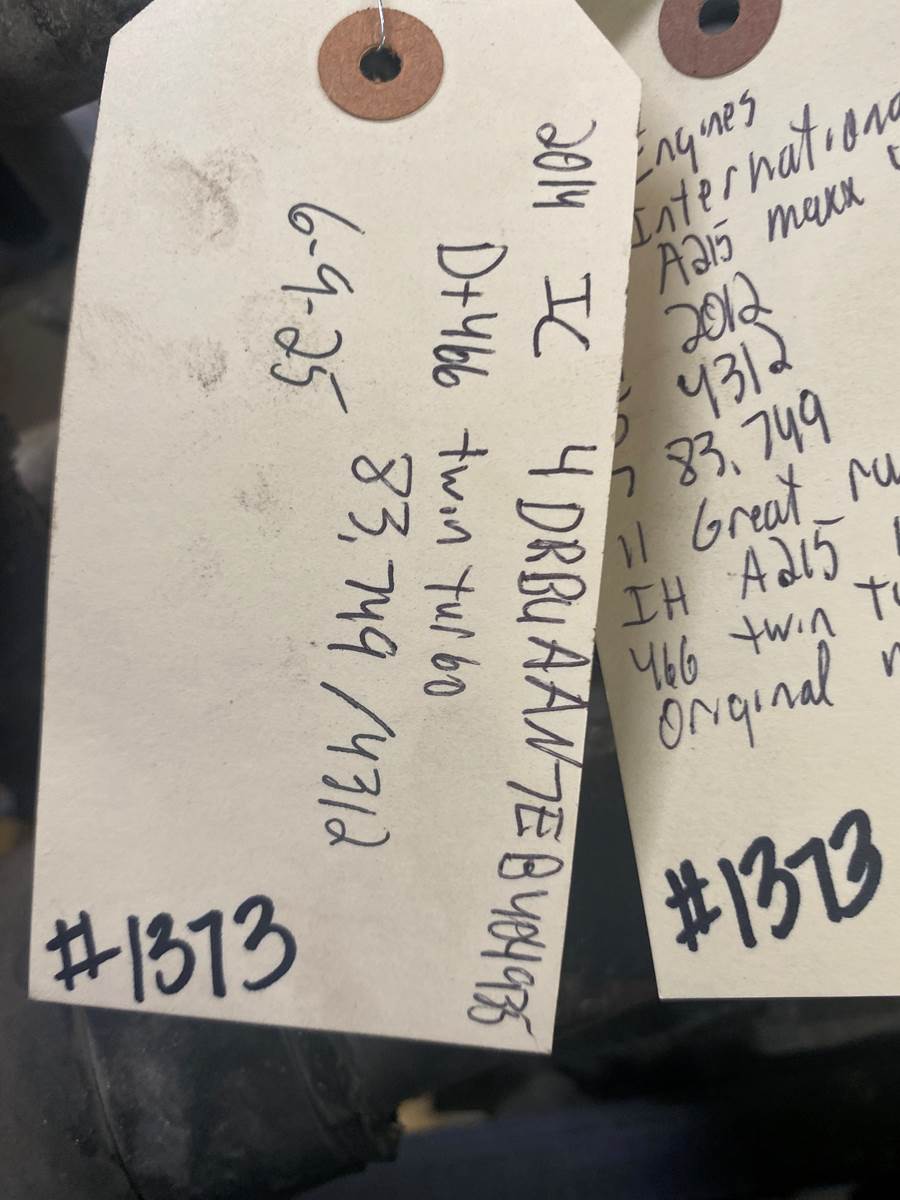 2014 IC 4DRBUAAN7EB404935
Dt466 twin turbo
83,749/4312
6-9-25
#1373
Engines
International
A215 maxx
2012
4312
83,749
Great
IH A215
466 twin
original
#1373